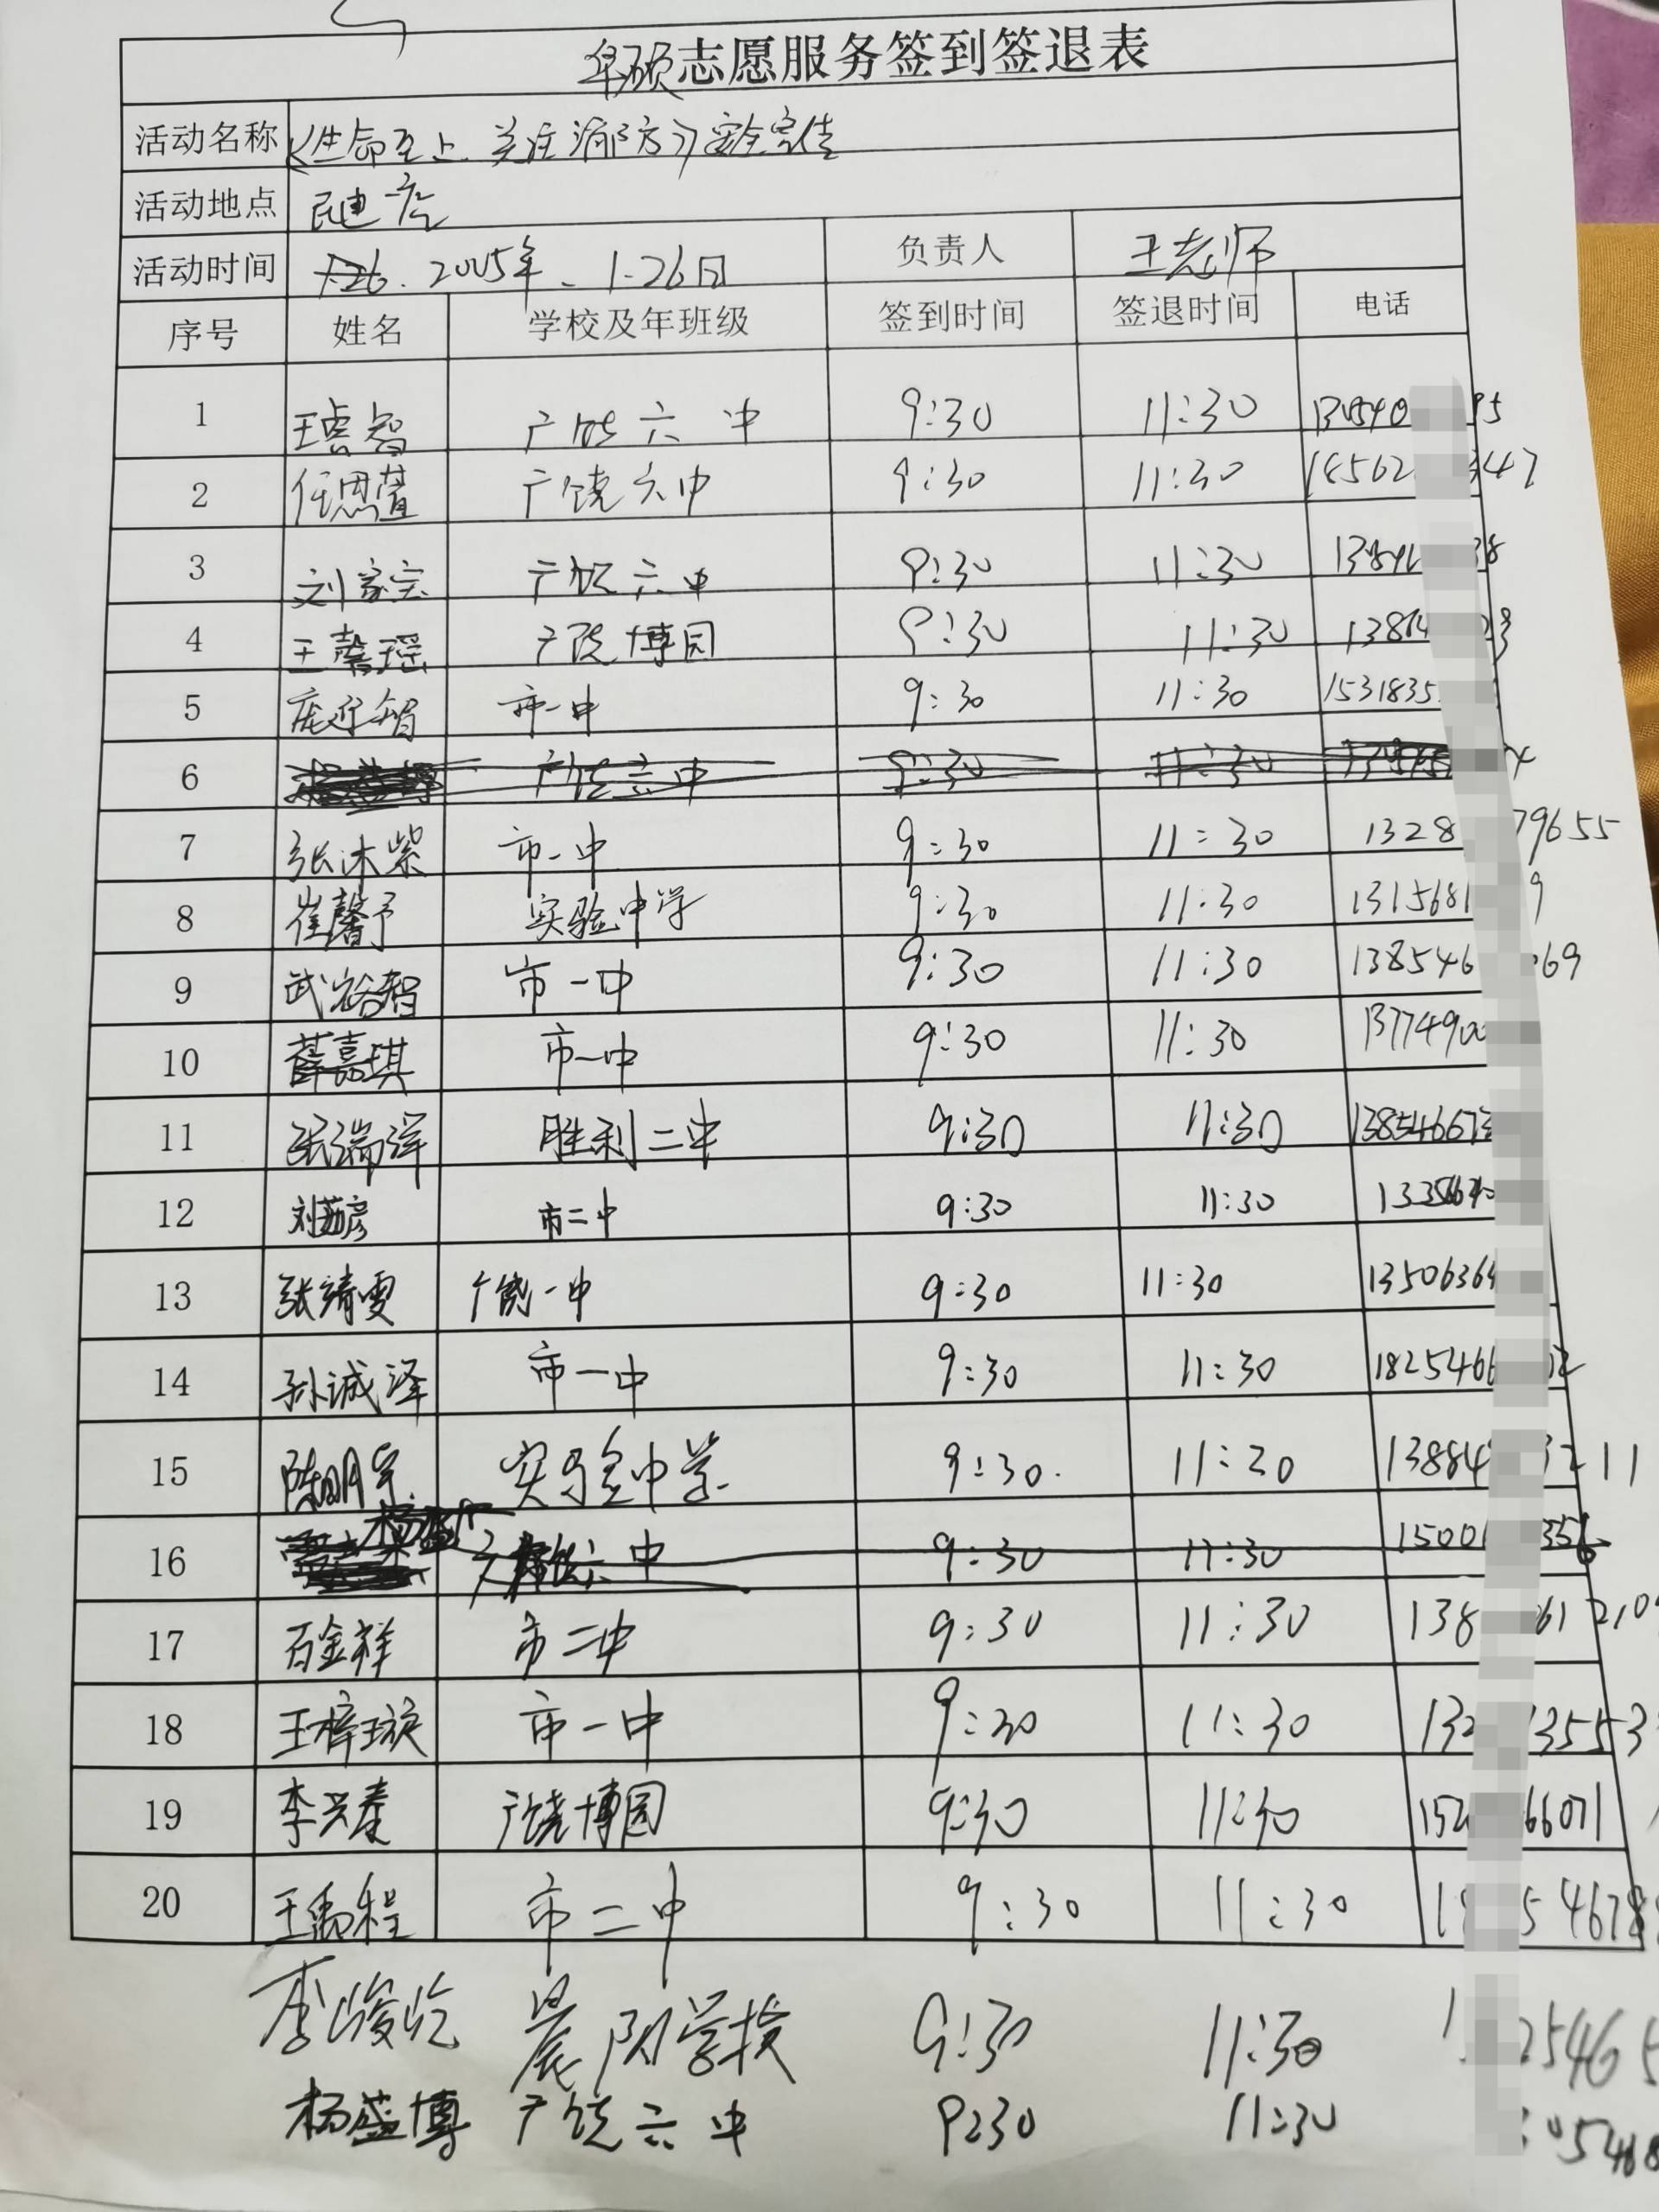 卓硕志愿服务签到签退表
活动名称 《生命至上.关注消防》安全宣传
活动地点
活动时间 1.26. 2025年、1.26日 负责人 王老师
序号 姓名 学校及年班级 签到时间 签退时间 电话
1 王睿智 广饶六中 9:30 11:30 130540 95
2 任思萱 广饶六中 9:30 11:30 18562 347
3 刘家宗 广饶六中 9:30 11:30 38
4 王馨瑶 广饶博园 9:30 11:30 13864
5 市一中 9:30 11:30 1531835
6 广饶六中 9:30 11:30
7 张沐紫 市一中 9:30 11:30 1328 79655
8 崔馨予 实验中学 9:30 11:30 1315681 9
9 武裕智 市一中 9:30 11:30 138546 069
10 薛嘉琪 市一中 9:30 11:30 13774900
11 张瑞泽 胜利二中 9:30 11:30 138546673
12 市二中 9:30 11:30
13 张靖雯 广饶一中 9:30 11:30 13506364
14 孙诚泽 市一中 9:30 11:30 1825466 12
15 陈明宇 实验中学 9:30. 11:30 13884 3211
16 广饶六中 9:30 11:30 1500 356
17 石金祥 市二中 9:30 11:30 138 61210
18 王梓璇 市一中 9:30 11:30 132 3553
19 李兴泰 广饶博园 9:30 11:30 152 66071
20 王禹程 市二中 9:30 11:30 1 54678
李峻屹 晨阳学校 9:30 11:30 1 25465
杨盛博 广饶六中 9:30 11:30 05468